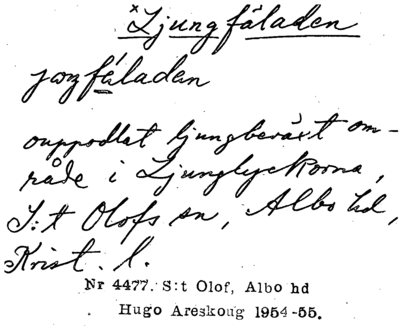 ×Ljungfäladen
joŋfáladen
ouppodlat ljungbeväxt om-
råde i Ljunglyckorna,
S:t Olofs sn, Albo hd,
Krist. l.
Nr 4477. S:t Olof, Albo hd
Hugo Areskoug 1954-55.